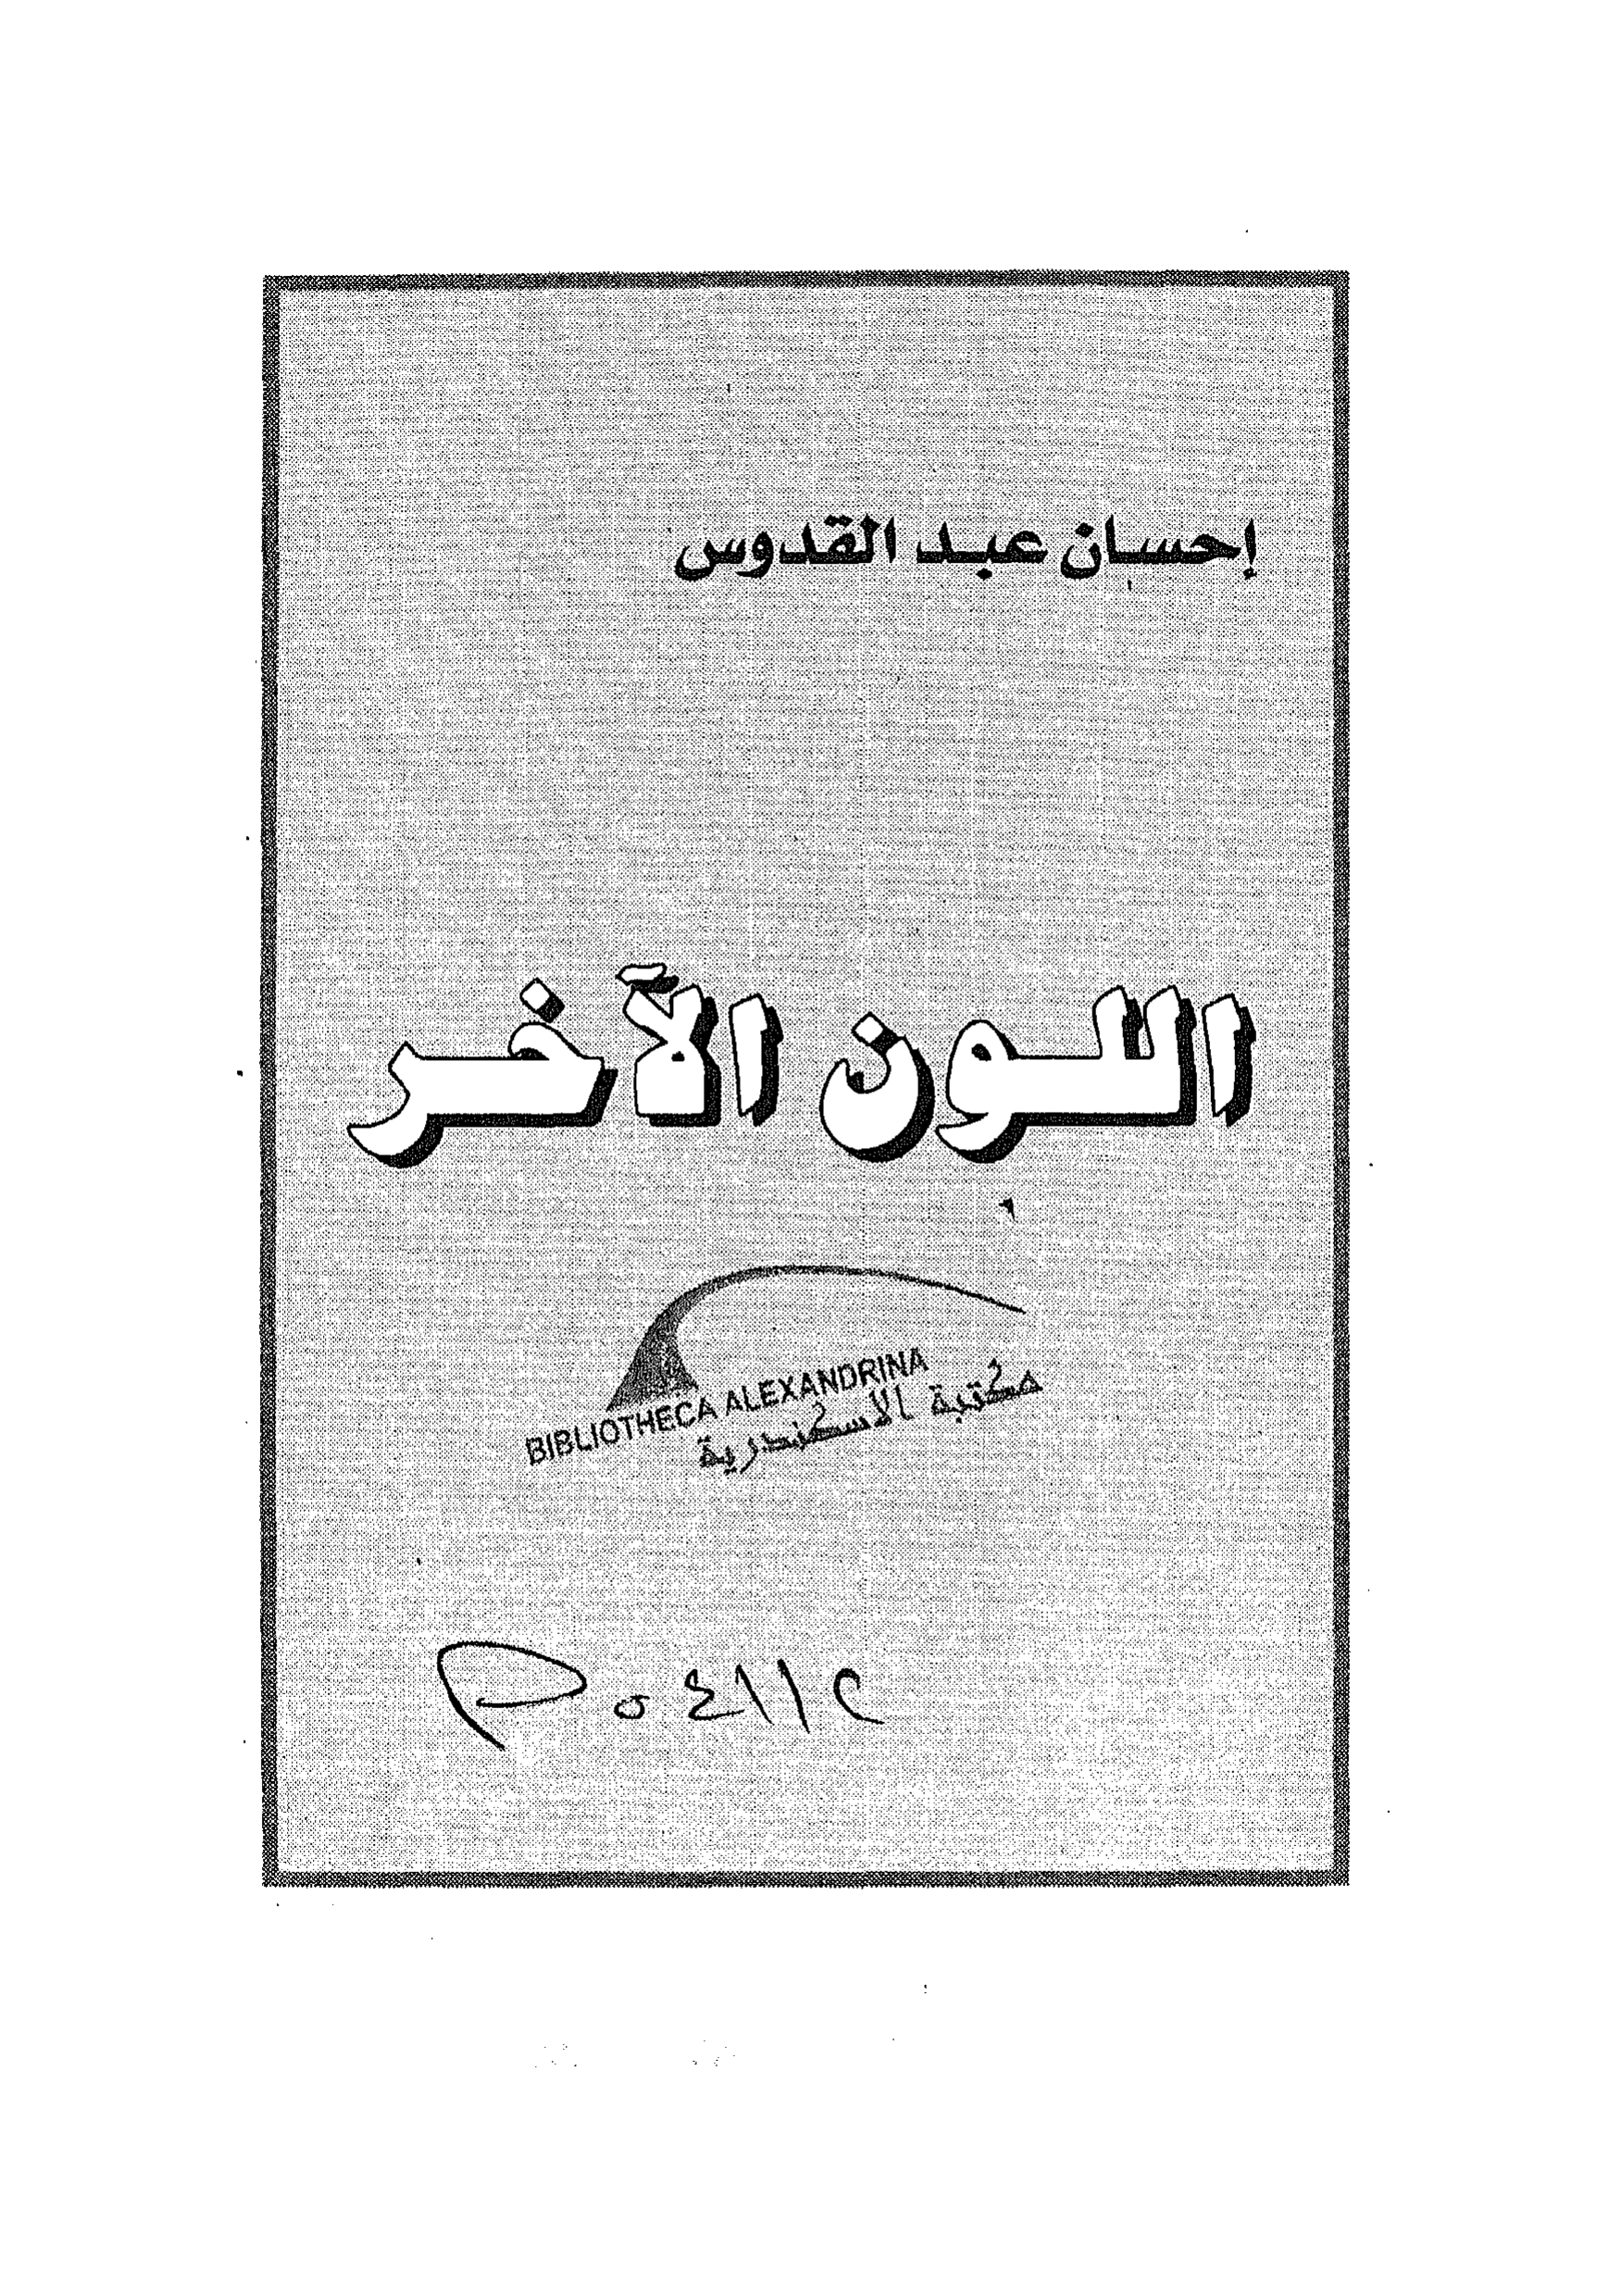 إحسان عبد القدوس
اللون الآخر
BIBLIOTHECA ALEXANDRINA
مكتبة الاسكندرية